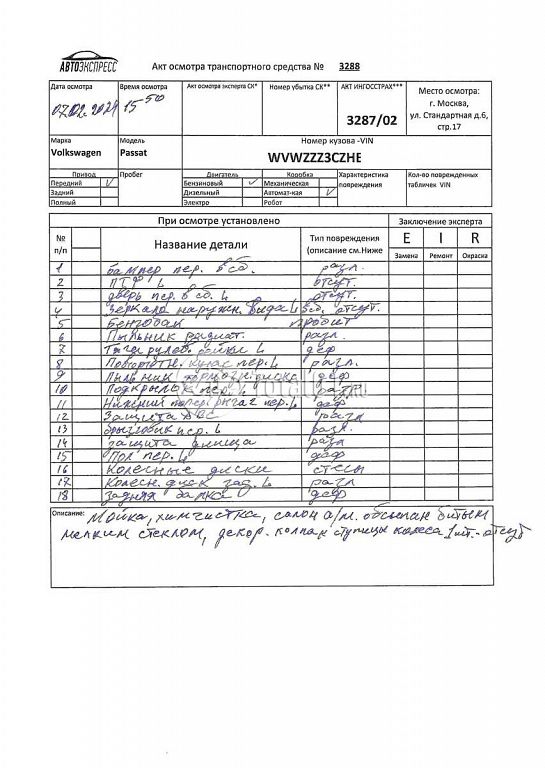 АВТОЭКСПРЕСС
Акт осмотра транспортного средства № 3288
Дата осмотра Время осмотра Акт осмотра эксперта СК* Номер убытка СК** АКТ ИНГОССТРАХ*** Место осмотра:
07.02.2024 15 50 3287/02 г. Москва,
ул. Стандартная д.6,
стр.17
Марка Модель Номер кузова -VIN
Volkswagen Passat WVWZZZ3CZHE
Привод Пробег Двигатель Коробка Характеристика повреждения Кол-во поврежденных табличек VIN
Передний √ Бензиновый √ Механическая
Задний Дизельный Автомат-кая √
Полный Электро Робот
При осмотре установлено Заключение эксперта
№ п/п Название детали Тип повреждения (описание см.Ниже E I R
Замена Ремонт Окраска
1 бампер пер. в сб. разл.
2 ПТФ L отсут.
3 дверь пер. в сб. L отсут.
4 Зеркало наружн. вида L в сб. отсут.
5 Бензобак пробит
6 Пыльник радиат. разл.
7 Тяга рулев. рейки L деф
8 Поворотн. кулас пер. L разл.
9 Пыльник тормозн. диска деф
10 Подкрылок пер. L разр
11 Нижний попер. рычаг пер. L деф
12 Защита ДВС разл
13 брызговик пер. L разл.
14 защита днища разл
15 Пол пер. L деф
16 Колесные диски стесы
17 Колесн. диск зад. L разл
18 Задняя балка деф
Описание: Мойка, химчистка, салон а/м. обсыпан битым
мелким стеклом, декор. колпак ступицы колеса 1 шт. - отсут